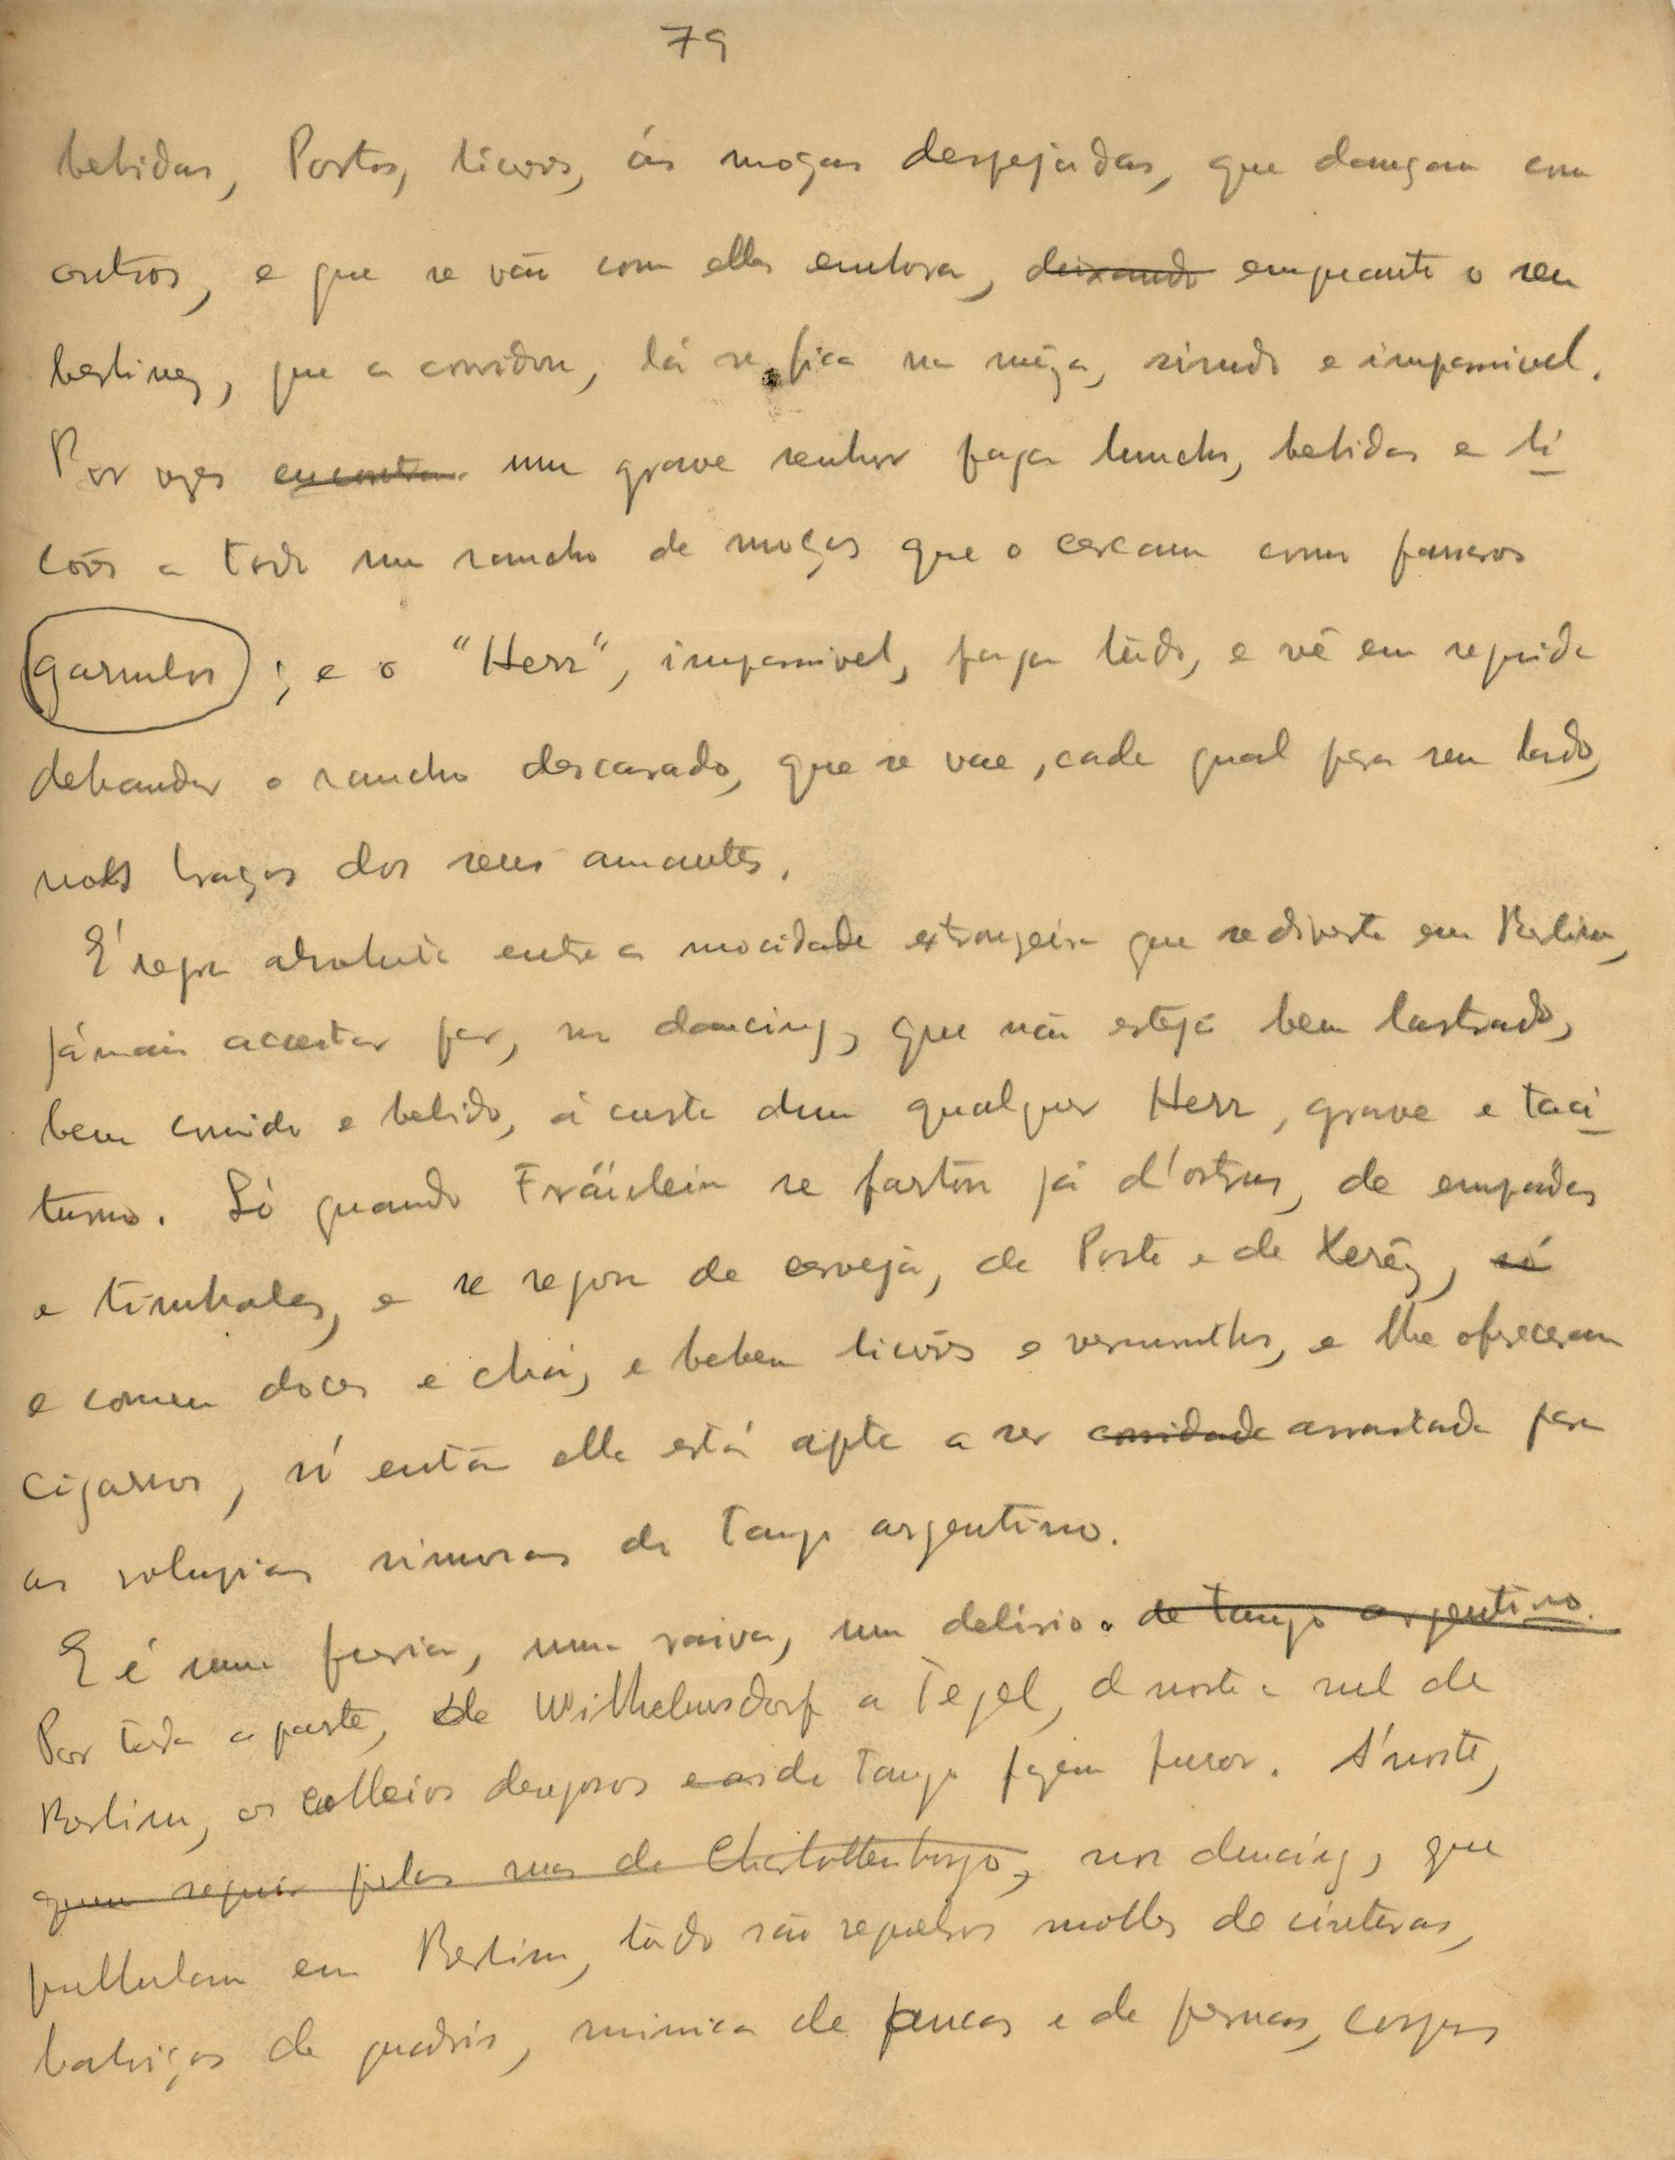 79
bebidas, Portos, licores, ás moças despejadas, que dançam com
outros, e que se vão com elles embora, deixando emquanto o seu
berlinez, que a convidou, lá se fica na mêza, rindo e impassivel.
Por vezes encontra um grave senhor paga lunchs, bebidas e li
côres a todo um rancho de moças que o cercam como passaros
garrulos; e o "Herr", impassivel, paga tudo, e vê em seguida
debandar o rancho descarado, que se vae, cada qual para seu lado,
nos braços dos seus amantes.
É regra absoluta entre a mocidade extrangeira que se diverte em Berlim,
jámais acceitar par, no dancing, que não esteja bem lastrado,
bem comido e bebido, á custa dum qualquer Herr, grave e taci
turno. Só quando Fräulein se fartou já d'ostras, de empadas
e timbales, e se regou de cerveja, de Porto e de Xerêz, só
e comeu doces e chá, e bebeu licôres e vermuths, e lhe ofereceram
cigarros, só então ella está apta a ser convidada arrastada para
as volupias sinuosas do Tango argentino.
E é uma furia, uma raiva, um delirio. de tango argentino.
Por toda a parte, de Wilhelmsdorf a Tegel, de norte a sul de
Berlim, os colleios dengosos do Tango fazem furor. Á noite,
quem seguir pelas ruas de Charlottenburgo, nos dancing, que
pullulam em Berlim, tudo são requebros molles de cinturas,
de quadris, mimica de ancas e de pernas, corpos